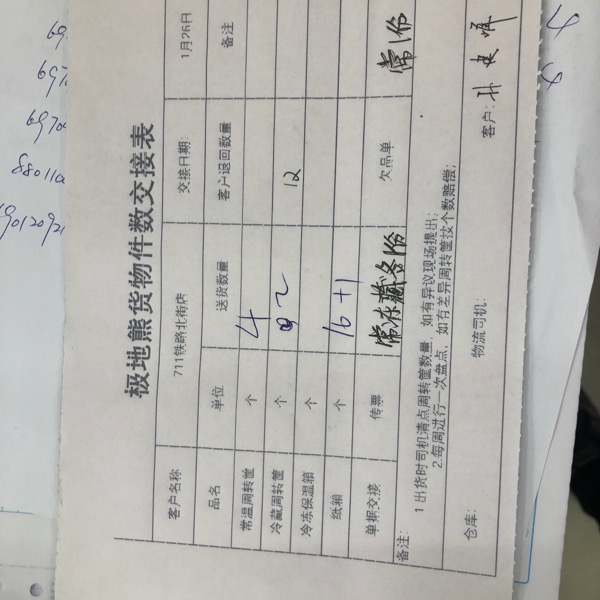 极地熊货物件数交接表
客户名称 711铁路北街店 交接日期: 1月26
品名 单位 送货数量 客户退回数量 备注
常温周转筐 个 4
冷藏周转筐 个 2 12
冷冻保温箱 个
纸箱 个 16+1
单据交接 传票 常冻藏各1份 欠品单 常1份
备注:
1 出货时司机清点周转筐数量, 如有异议现场提出;
2.每周进行一次盘点, 如有差异周转筐按个数赔偿;
仓库: 物流司机: 客户: